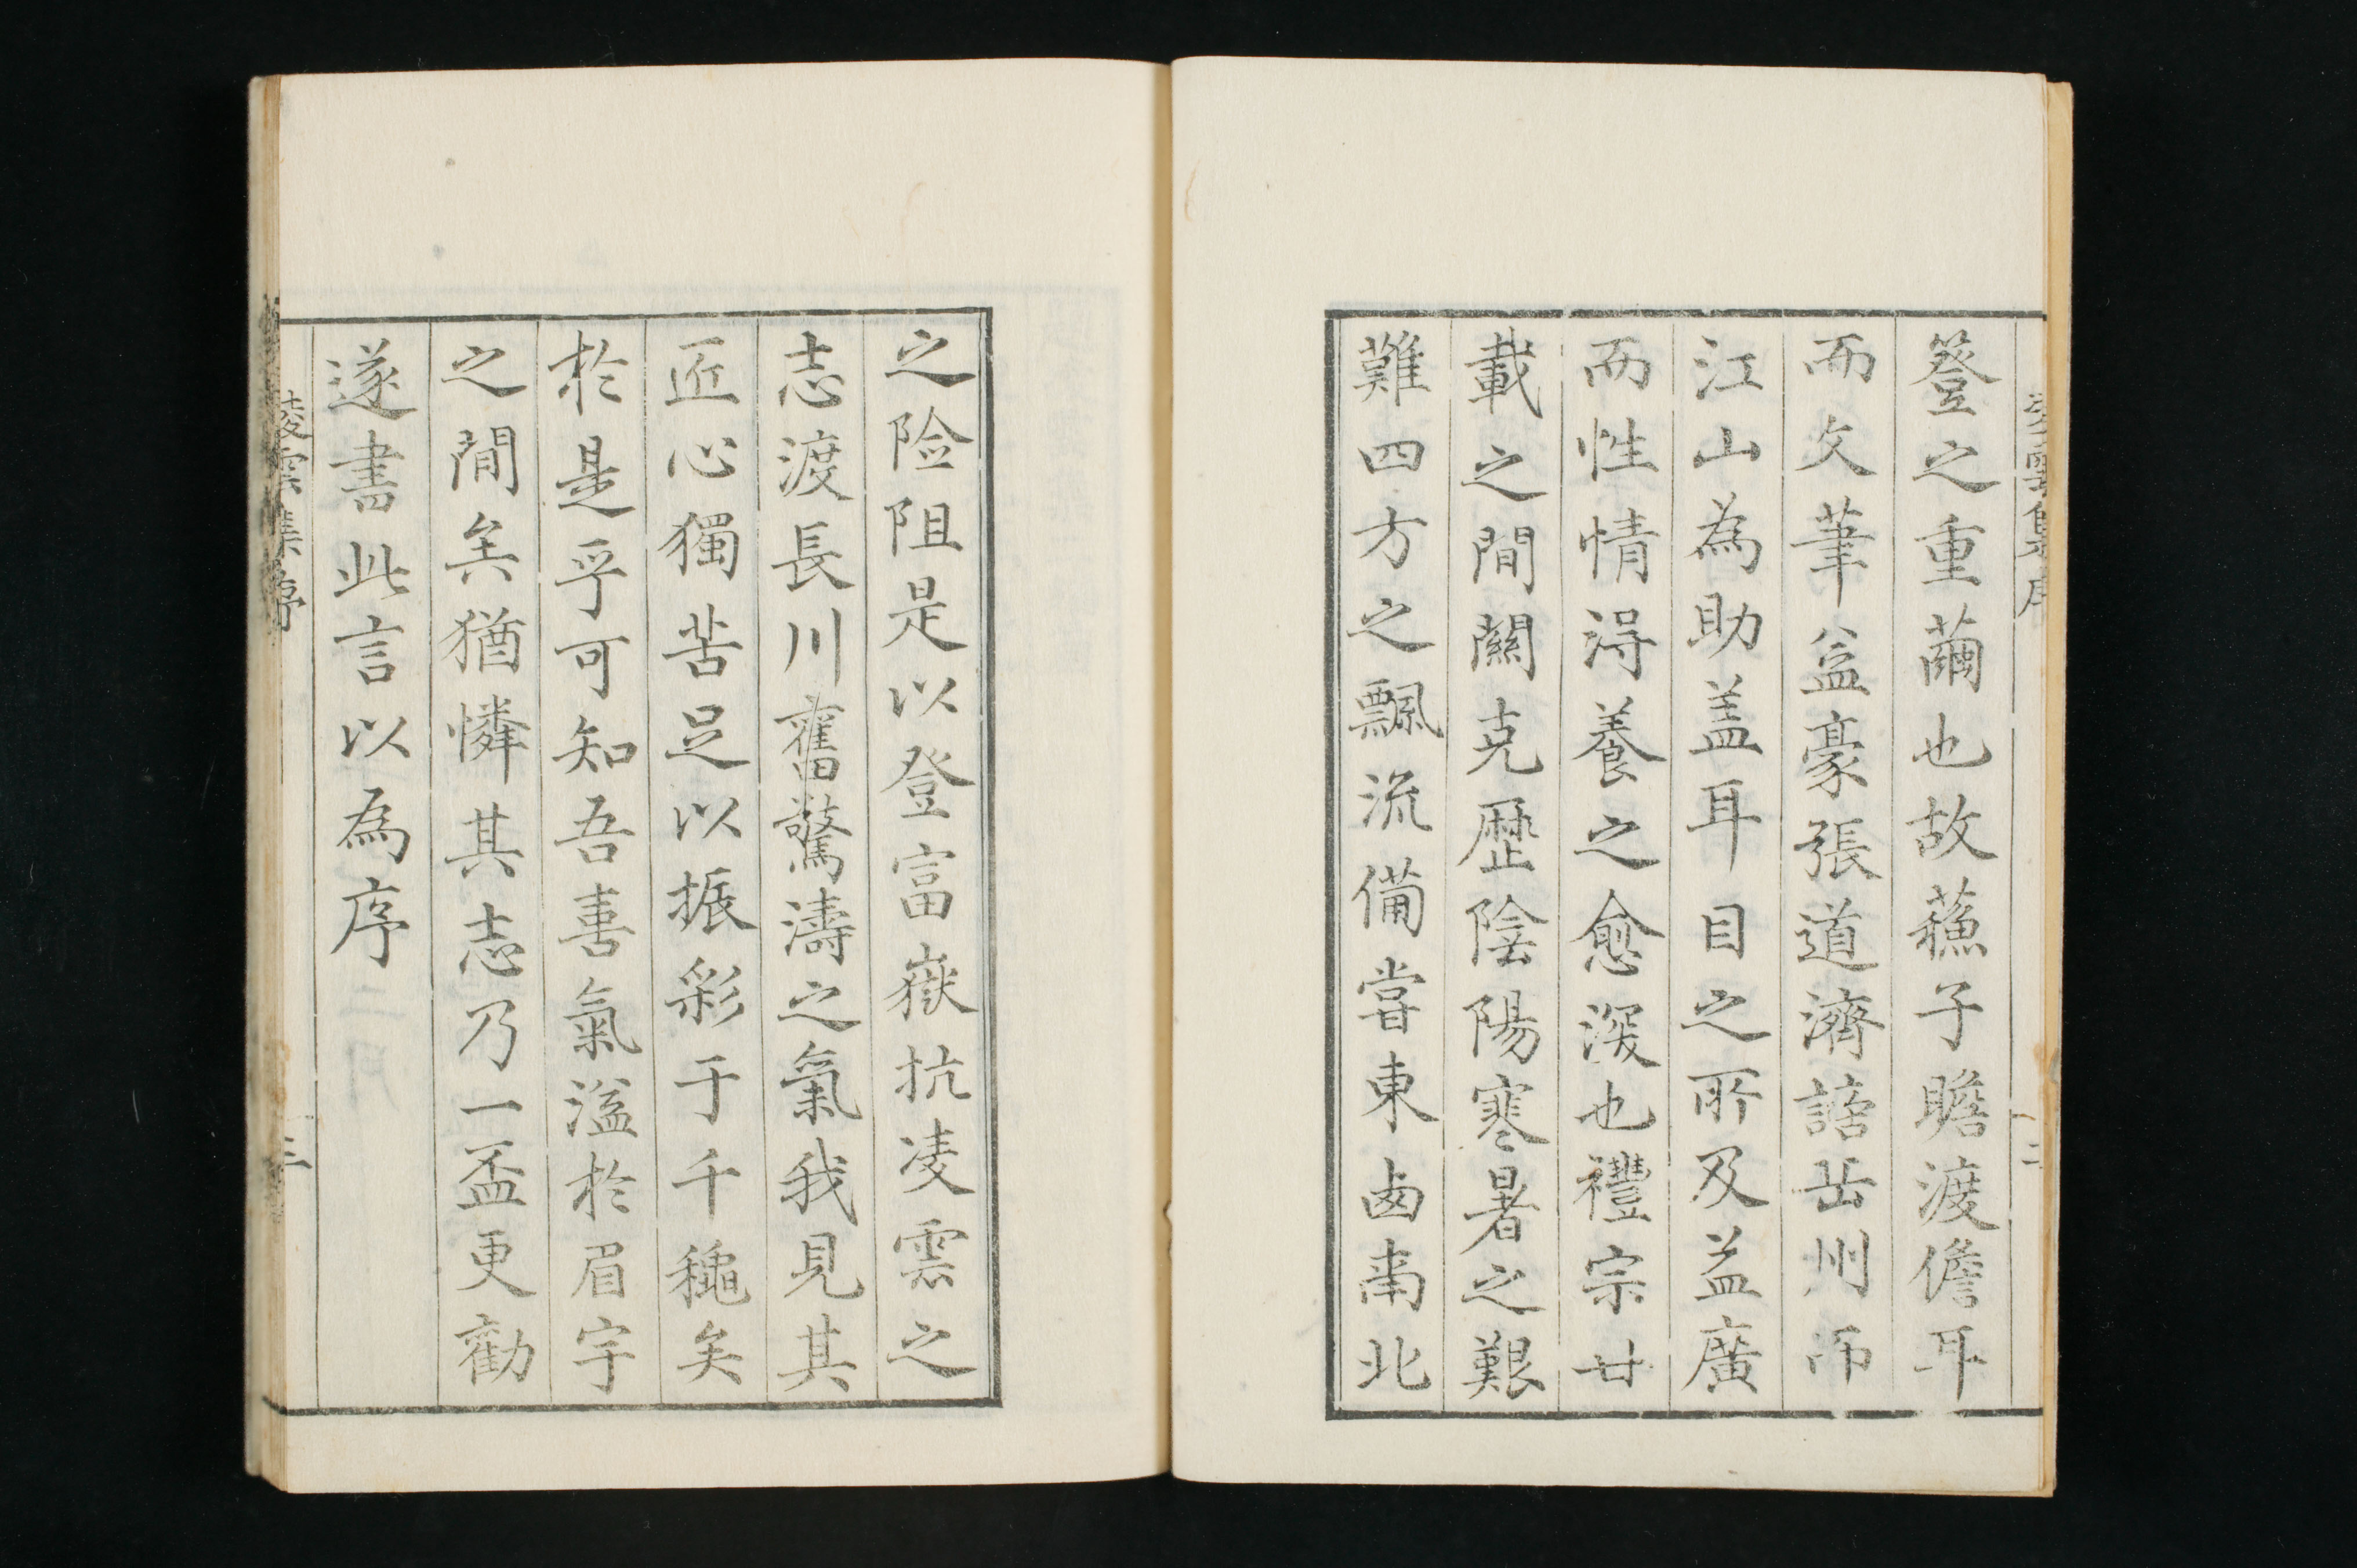 凌雲集序
二
簦之重繭也故蘓子瞻渡儋耳
而文筆益豪張道濟謫岳州而
江山為助盖耳目之所及益廣
而性情淂養之愈深也禮宗廿
載之間關克歷陰陽寒暑之艱
難四方之飄流備嘗東鹵南北
之險阻是以登富嶽抗凌雲之
志渡長川奮驚濤之氣我見其
匠心獨苦足以振彩于千龝矣
於是乎可知吾喜氣溢於眉宇
之間矣猶憐其志乃一盃更勸
遂書此言以為序
凌雲集序
三